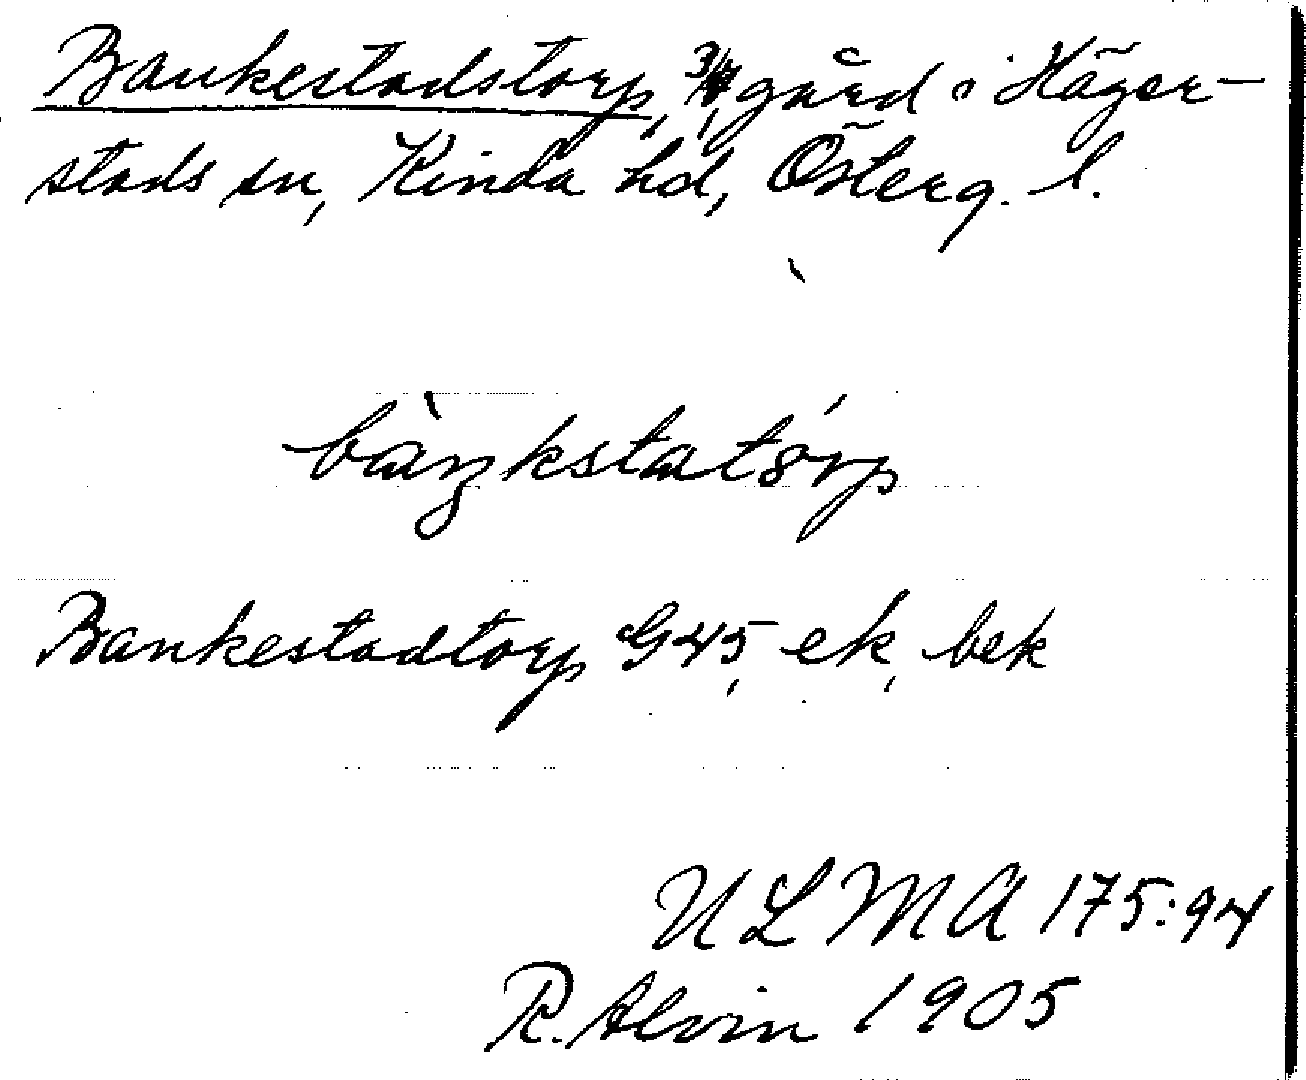 Bankestadstorp, 3/4 gård i Häger-
stads sn, Kinda hd, Österg. l.
bàŋkstatórp
Bankestadtorp G45, ek, bek
ULMA 175:94
R. Alvin 1905